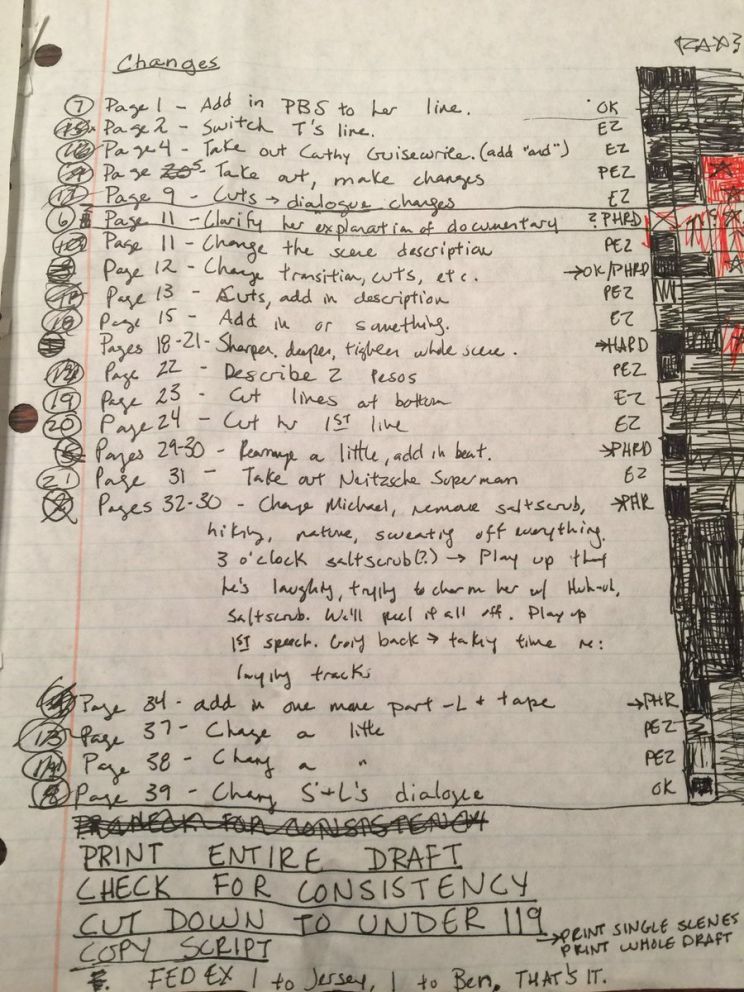 Changes
7 Page 1 - Add in PBS to her line. OK
15 Page 2 - Switch T's line. EZ
16 Page 4 - Take out Cathy Guisewite. (add "and") EZ
Page 5 - Take out, make changes PEZ
17 Page 9 - Cuts → dialogue changes EZ
6 Page 11 - Clarify her explanation of documentary ? PHRD
Page 11 - Change the scene description PEZ
Page 12 - Change transition, cuts, etc. → OK/PHRD
Page 13 - Cuts, add in description PEZ
18 Page 15 - Add in or something. EZ
Pages 18-21 - Sharper, deeper, tighten whole scene. → HARD
Page 22 - Describe 2 Pesos PEZ
19 Page 23 - Cut lines at bottom EZ
20 Page 24 - Cut hr 1ST line EZ
Pages 29-30 - Rearrange a little, add in beat. → PHRD
21 Page 31 - Take out Neitzsche Superman EZ
Pages 32-30 - Change Michael, remove saltscrub, → PHR
hiking, nature, sweating off everything.
3 o'clock saltscrub(?) → Play up that
he's laughing, trying to charm her w/ Huh-uh,
saltscrub. We'll peel it all off. Play up
1ST speech. Going back → taking time re:
laying tracks
Page 34 - add in one more part - L + tape → PHR
13 Page 37 - Change a little PEZ
14 Page 38 - Chang a " PEZ
8 Page 39 - Chang S + L's dialogue OK
PRINT ENTIRE DRAFT
CHECK FOR CONSISTENCY
CUT DOWN TO UNDER 119
→ PRINT SINGLE SCENES
PRINT WHOLE DRAFT
COPY SCRIPT
FEDEX 1 to Jersey, 1 to Ben, THAT'S IT.